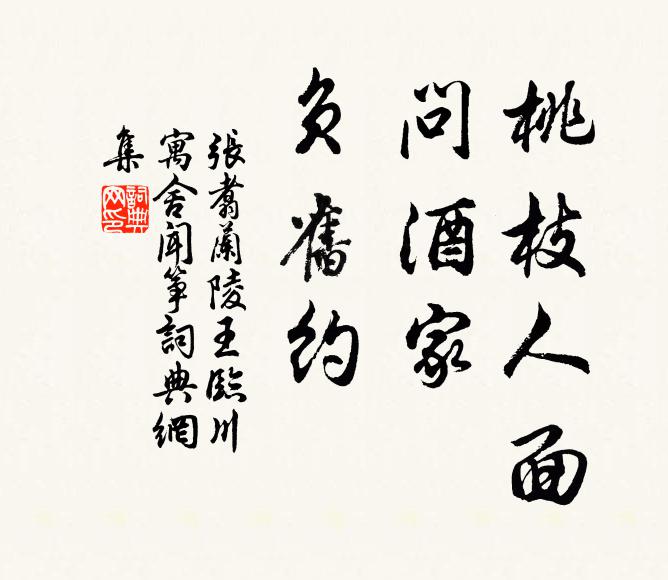 桃枝人面
問酒家
負舊約
張翥蘭陵王臨川
寓舍聞箏詞典網
集
詞典网印